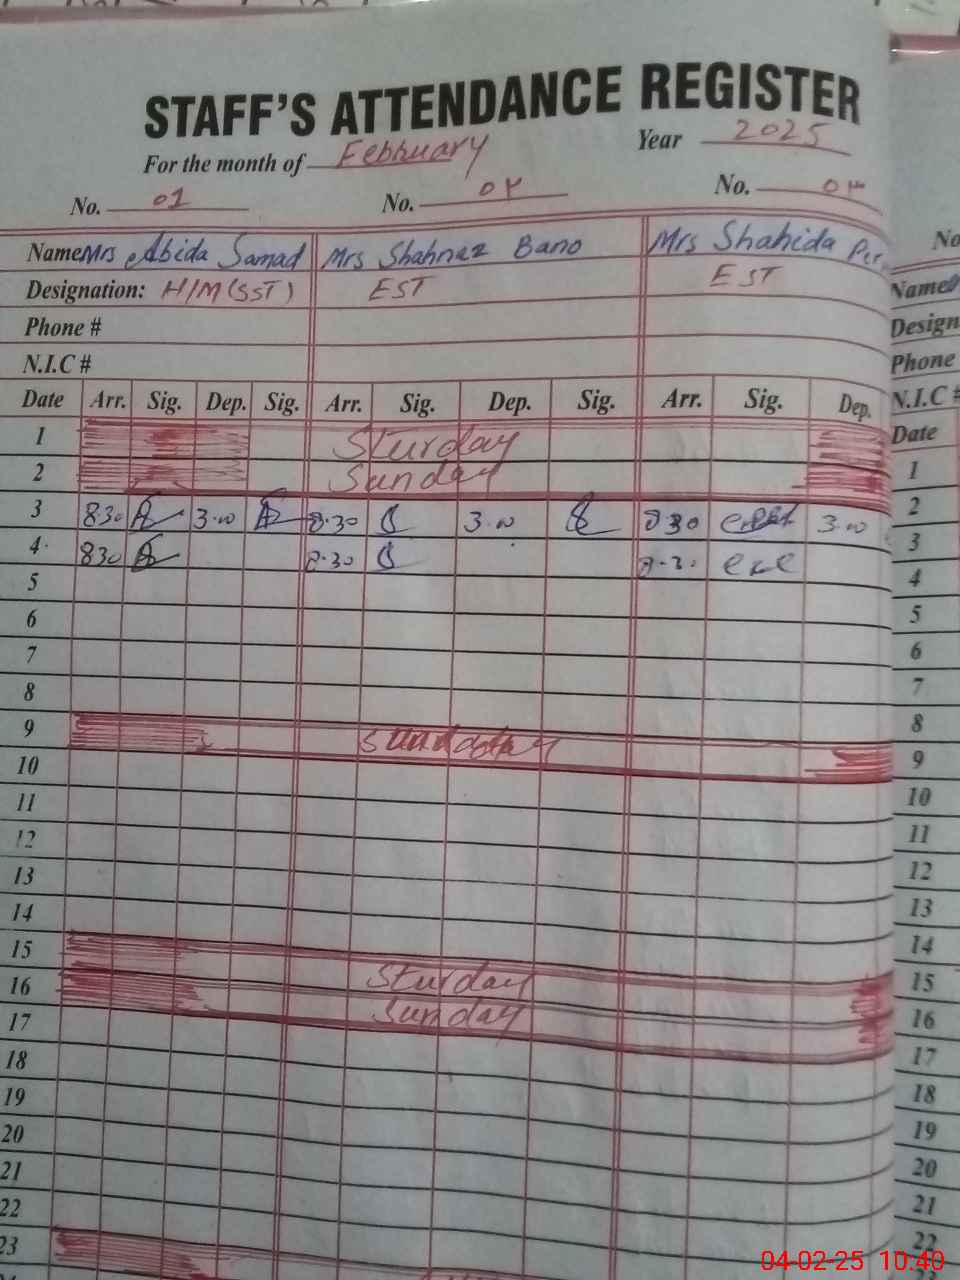 STAFF'S ATTENDANCE REGISTER
For the month of February Year 2025
No. 01 No. 0۲ No. 0۳
Name Mrs Abida Samad Mrs Shahnaz Bano Mrs Shahida
Designation: H/M(SST) EST EST
Phone #
N.I.C #
Date Arr. Sig. Dep. Sig. Arr. Sig. Dep. Sig. Arr. Sig. Dep.
1 Sturday
2 Sunday
3 8.30 3.00 8.30 3.00 8 30 3.00
4 830 8.30 8.30
5
6
7
8
9
10
11
12
13
14
15 Sturday
16 Sunday
17
18
19
20
21
22
23
No
Name
Design
Phone
N.I.C #
Date
1
2
3
4
5
6
7
8
9
10
11
12
13
14
15
16
17
18
19
20
21
22
04-02-25 10:40